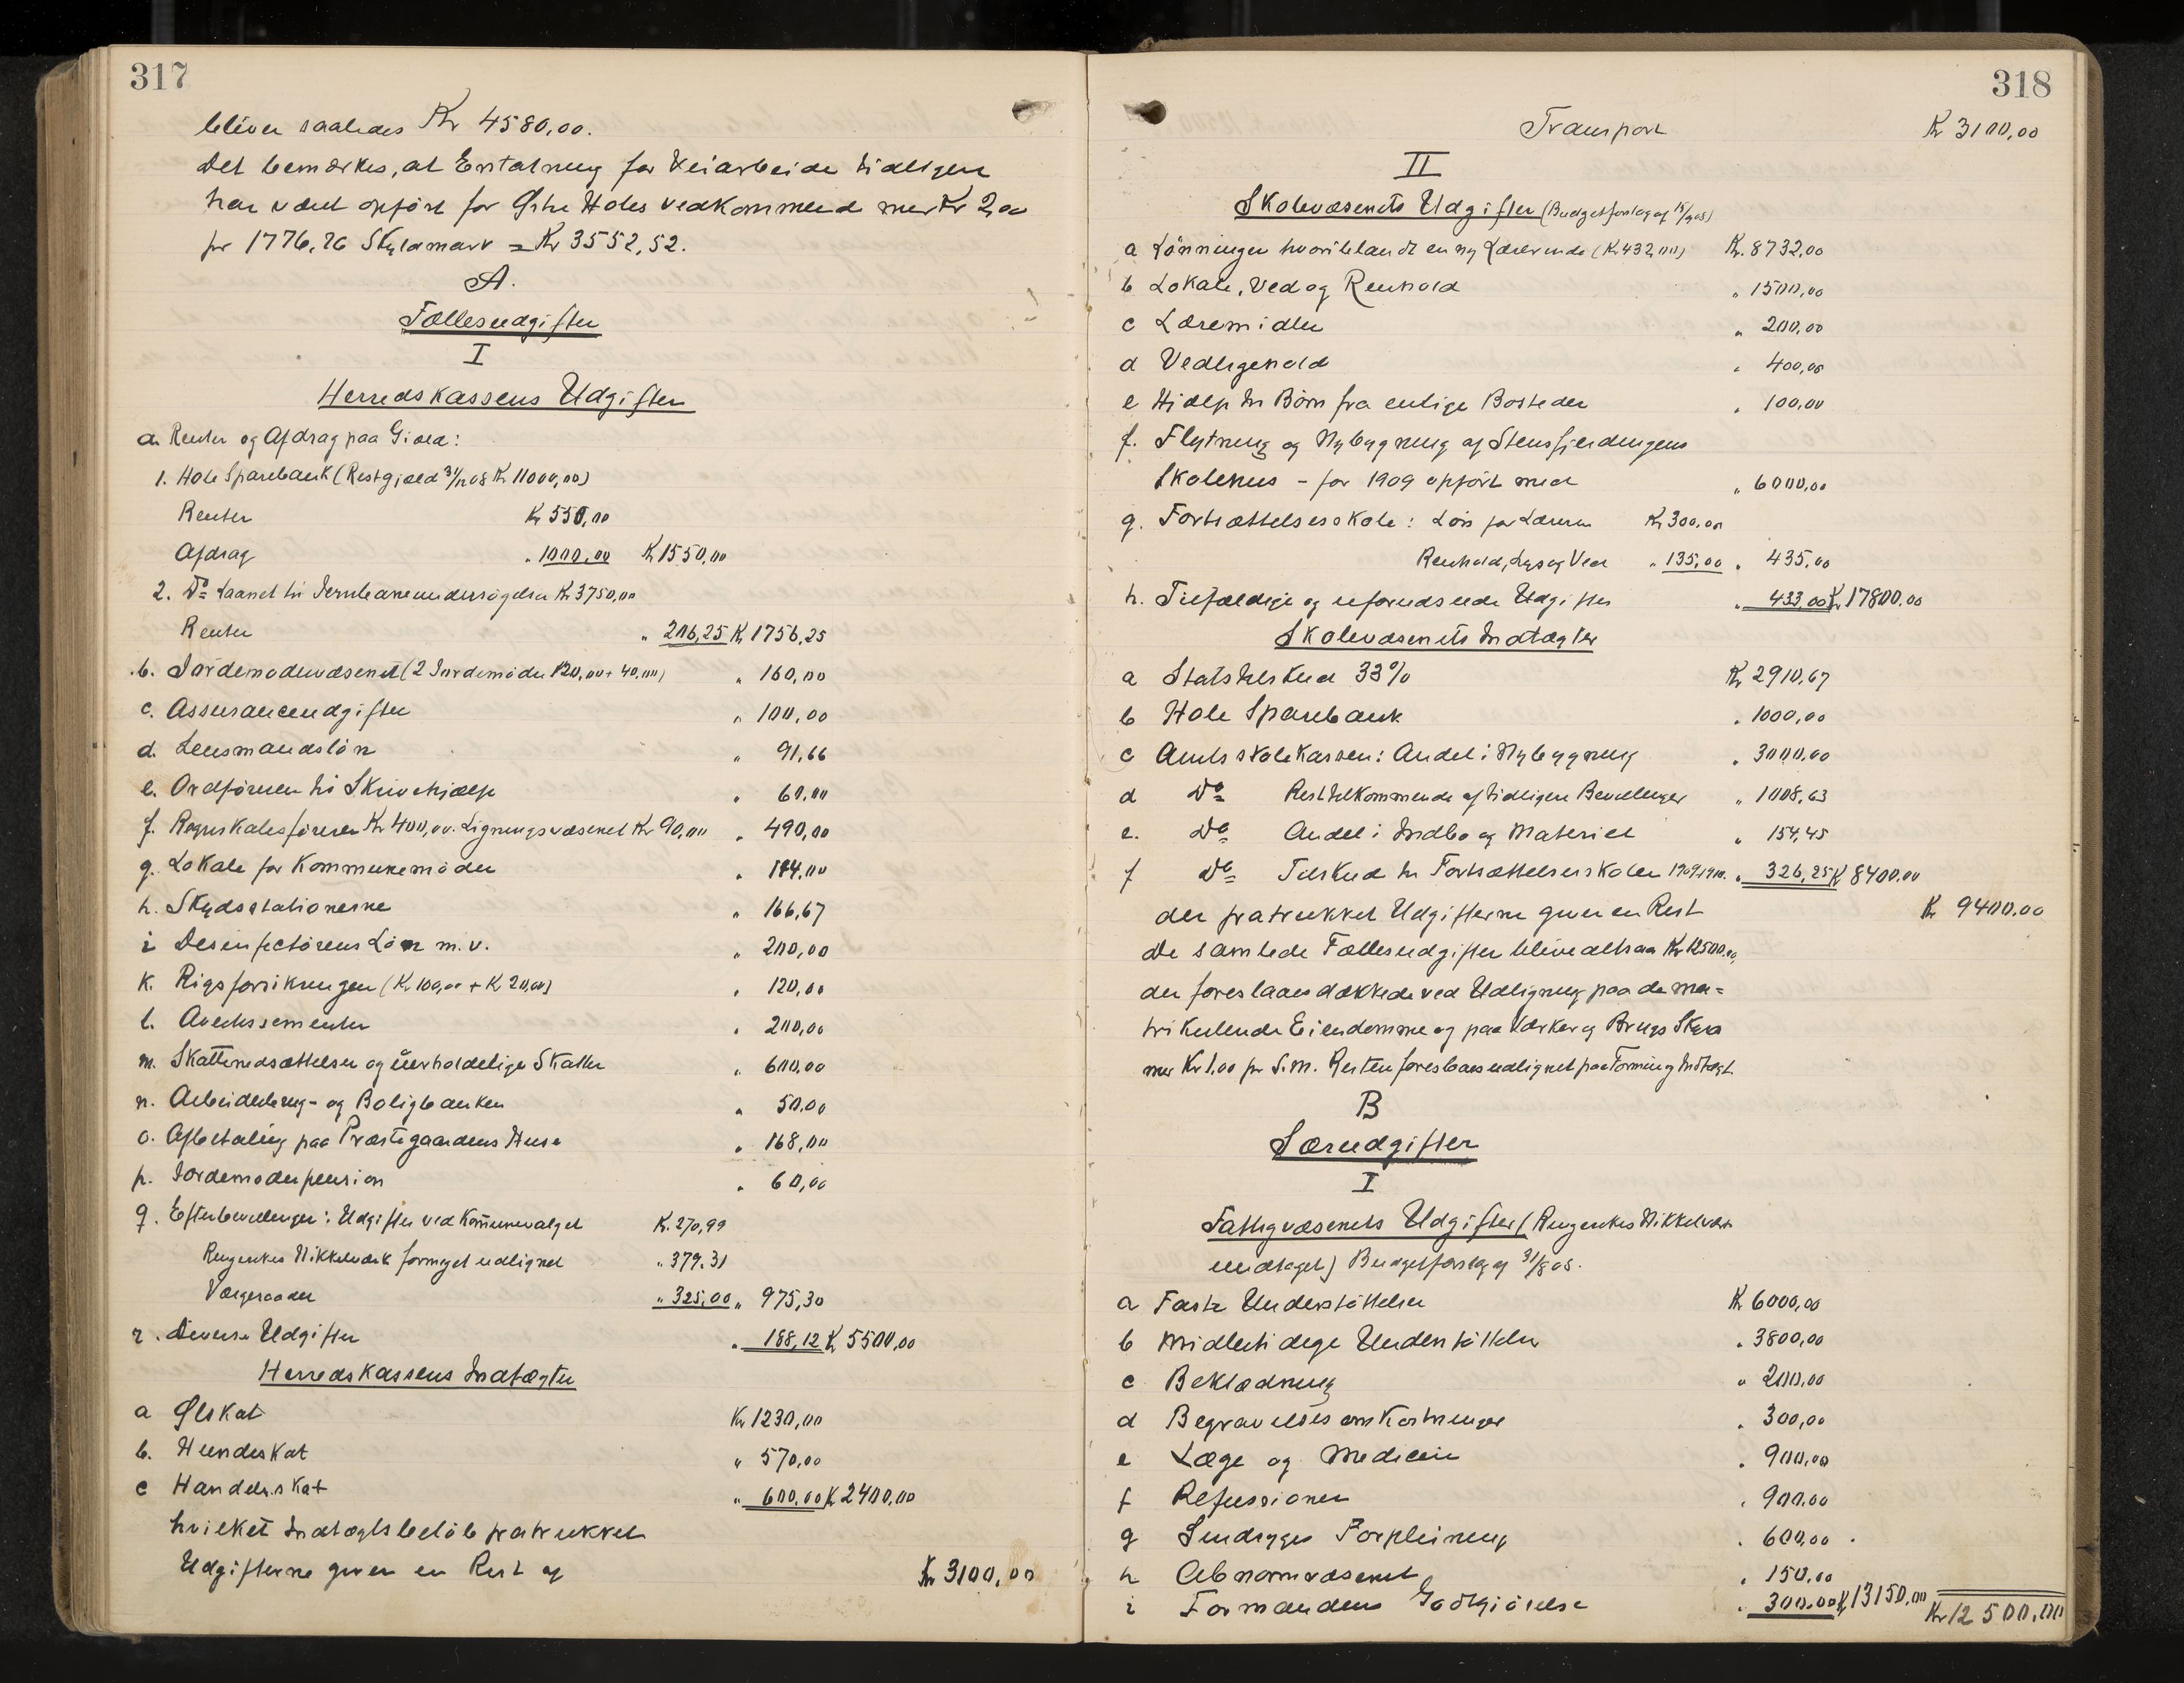 317
bliver saaledes Kr 4580,00.
Det bemærkes, at Erstatning for Veiarbeide tidligere
har været opført for Østre Holes vedkommende med Kr 2,00
pr 1776,26 Skyldmark = Kr 3552,52.
A.
Fællesudgifter
I
Herredskassens Udgifter
a. Renter og Afdrag paa Gjæld:
1. Hole Sparebank (Restgjæld 31/12 08 Kr 11000,00)
Renter Kr 550,00
Afdrag " 1000,00 Kr 1550,00
2. Do Laanet til Jernbaneundersøgelsen Kr 3750,00
Renter " 206,25 Kr 1756,25
b. Jordemodervæsenet (2 Jordemødre 120,00 + 40,00) " 160,00
c. Assuranceudgifter " 100,00
d. Lensmandsløn " 91,66
e. Ordføreren til Skrivehjælp " 60,00
f. Regnskabsføreren Kr 400,00. Ligningsvæsenet Kr 90,00 " 490,00
g. Lokale for Kommunemøder " 144,00
h. Skydsstationerne " 166,67
i Desinfectørens Løn m.v. " 200,00
k. Rigsforsikringen (Kr 100,00 + Kr 20,00) " 120,00
l. Avertissementer " 200,00
m. Skattenedsættelser og uerholdelige Skatter " 600,00
n. Arbeiderbrug- og Boligbanken " 50,00
o. Afbetaling paa Præstegaardens Huse " 168,00
p. Jordemoderpension " 60,00
q. Efterbevilninger: Udgifter ved Kommunevalget Kr. 270,99
Ringerikes Nikkelværk formeget udlignet " 379.31
Værgeraadet " 325,00 " 975,30
r. Diverse Udgifter " 188,12 Kr 5500,00
Herredskassens Indtægter
a Ølskat Kr 1230,00
b. Hundeskat " 570,00
c Handelsskat " 600,00 Kr 2400,00
hvilket Indtægtsbeløb fratrukket
Udgifterne giver en Rest af Kr 3100,00
318
Transport Kr 3100,00
II
Skolevæsenets Udgifter (Budgetforslag af 15/9 08)
a Lønninger hvoriblandt en ny Lærerinde (Kr 432,00) Kr. 8732,00
b Lokale, Ved og Renhold " 1500,00
c Læremidler " 200,00
d Vedligehold " 400,00
e Hjælp til Børn fra enlige Bosteder " 100,00
f. Flytning og Nybygning af Stensfjerdingens
Skolehus - for 1909 opført med " 6000,00
g. Fortsættelsesskole: Løn for Læreren Kr 300,00
Renhold, Lys og Ved " 135,00 " 435,00
h. Tilfældige og uforudseede Udgifter " 433,00 Kr 17800,00
Skolevæsenets Indtægter
a Statstilskud 33% Kr 2910,67
b Hole Sparebank " 1000,00
c Amtsskolekassen: Andel i Nybygning " 3000,00
d Do Resttilkommende af tidligere Bevilninger " 1008,63
e. Do Andel i Indbo og Materiel " 154,45
f Do Tilskud til Fortsættelsesskolen 1909-1910. " 326,25 Kr 8400.00
der fratrukket Udgifterne giver en Rest Kr 9400.00
De samlede Fællesudgifter bliver altsaa Kr 12500.00,
der foreslaaes dækkede ved Udligning paa de ma=
trikulerede Eiendomme og paa Værker og Brugs Skyld
med Kr 1,00 pr S.m. Resten foreslaaes udlignet paa Formue og Indtægt.
B
Særudgifter
I
Fattigvæsenets Udgifter (Ringerikes Nikkelværk
undtaget) Budgetforslag af 31/8 08.
a Faste Understøttelser Kr 6000,00
b Midlertidige Understøttelser " 3800,00
c Beklædning " 200,00
d Begravelsesomkostninger " 300,00
e Læge og Medicin " 900,00
f Refusioner " 900,00
g Sindsyges Forpleining " 600,00
h Abnormvæsenet " 150,00
i Formandens Godtgjørelse " 300.00 Kr 13150,00
Kr 12500,00